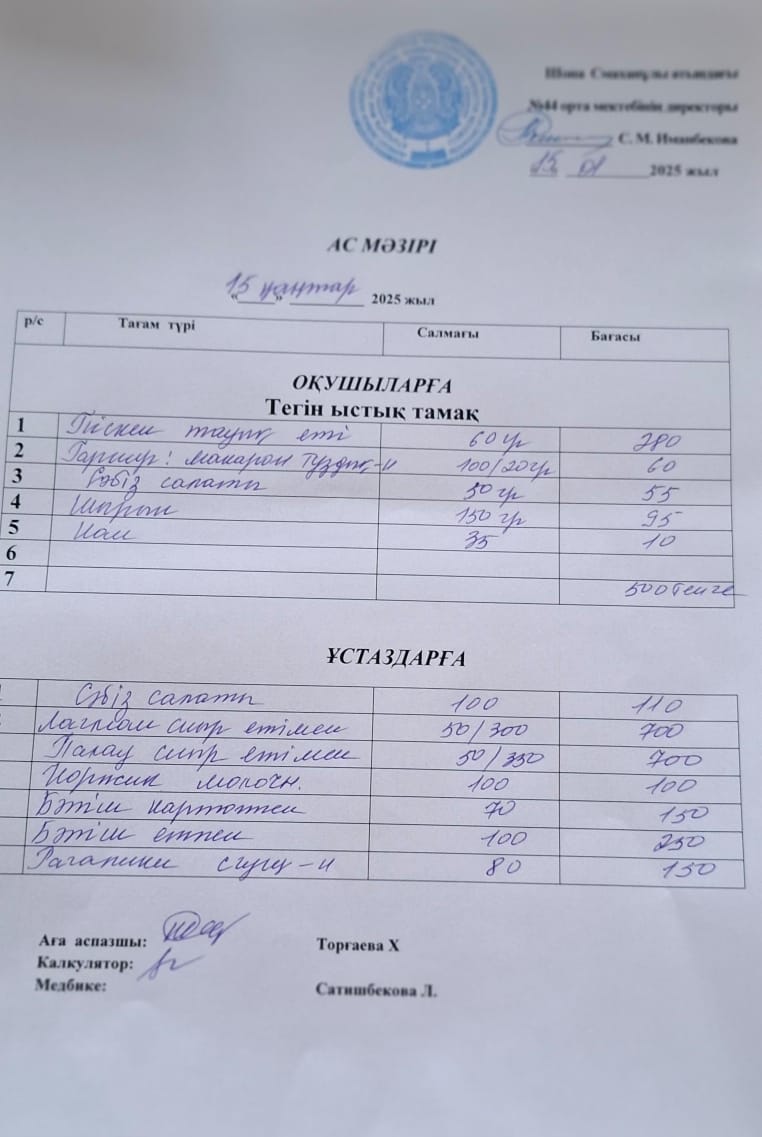 Шона Смаханұлы атындағы
№44 орта мектебінің директоры
С. М. Иманбекова
15 01 2025 жыл
АС МӘЗІРІ
"15" қаңтар 2025 жыл
р/с Тағам түрі Салмағы Бағасы
ОҚУШЫЛАРҒА
Тегін ыстық тамақ
1 Піскен тауық еті 60 гр 280
2 Гарнир: макарон тұздық-н 100/20гр 60
3 Сәбіз салаты 50 гр 55
4 Шырын 150 гр 95
5 Нан 35 10
6
7 500 теңге
ҰСТАЗДАРҒА
Сәбіз салаты 100 110
Лагман сиыр етімен 50/300 700
Палау сиыр етімен 50/350 700
Коржик молочн. 100 100
Бәтіш картоппен 70 150
Бәтіш етпен 100 250
80 150
Аға аспазшы: Торғаева Х
Калкулятор:
Медбике: Сатишбекова Л.